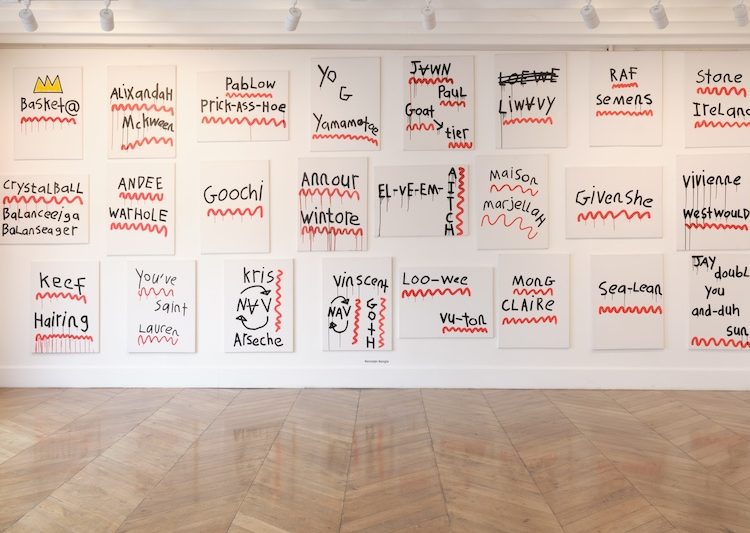 Basket@
ALiXandaH
McKween
PabLow
Prick-Ass-Hoe
Yo
G
Yamamotoe
J∀WN
PauL
Goat
tier
LOEWE
LiW∀VY
RAF
semens
Stone
IreLand
CrystalbaLL
BaLancee/ga
BaLanseager
ANDEE
WARHOLE
Goochi
Annour
wintore
EL-VE-EM-
AITCH
maison
marjellaH
Givenshe
vivienne
westwould
Keef
Hairing
You've
Saint
Lauren
kris
N∀V
Arseche
vinscent
NAV
GOTH
Loo-wee
vu-ton
MonG
CLAIRe
Sea-Lean
JAY
doubL
you
and-duh
sun